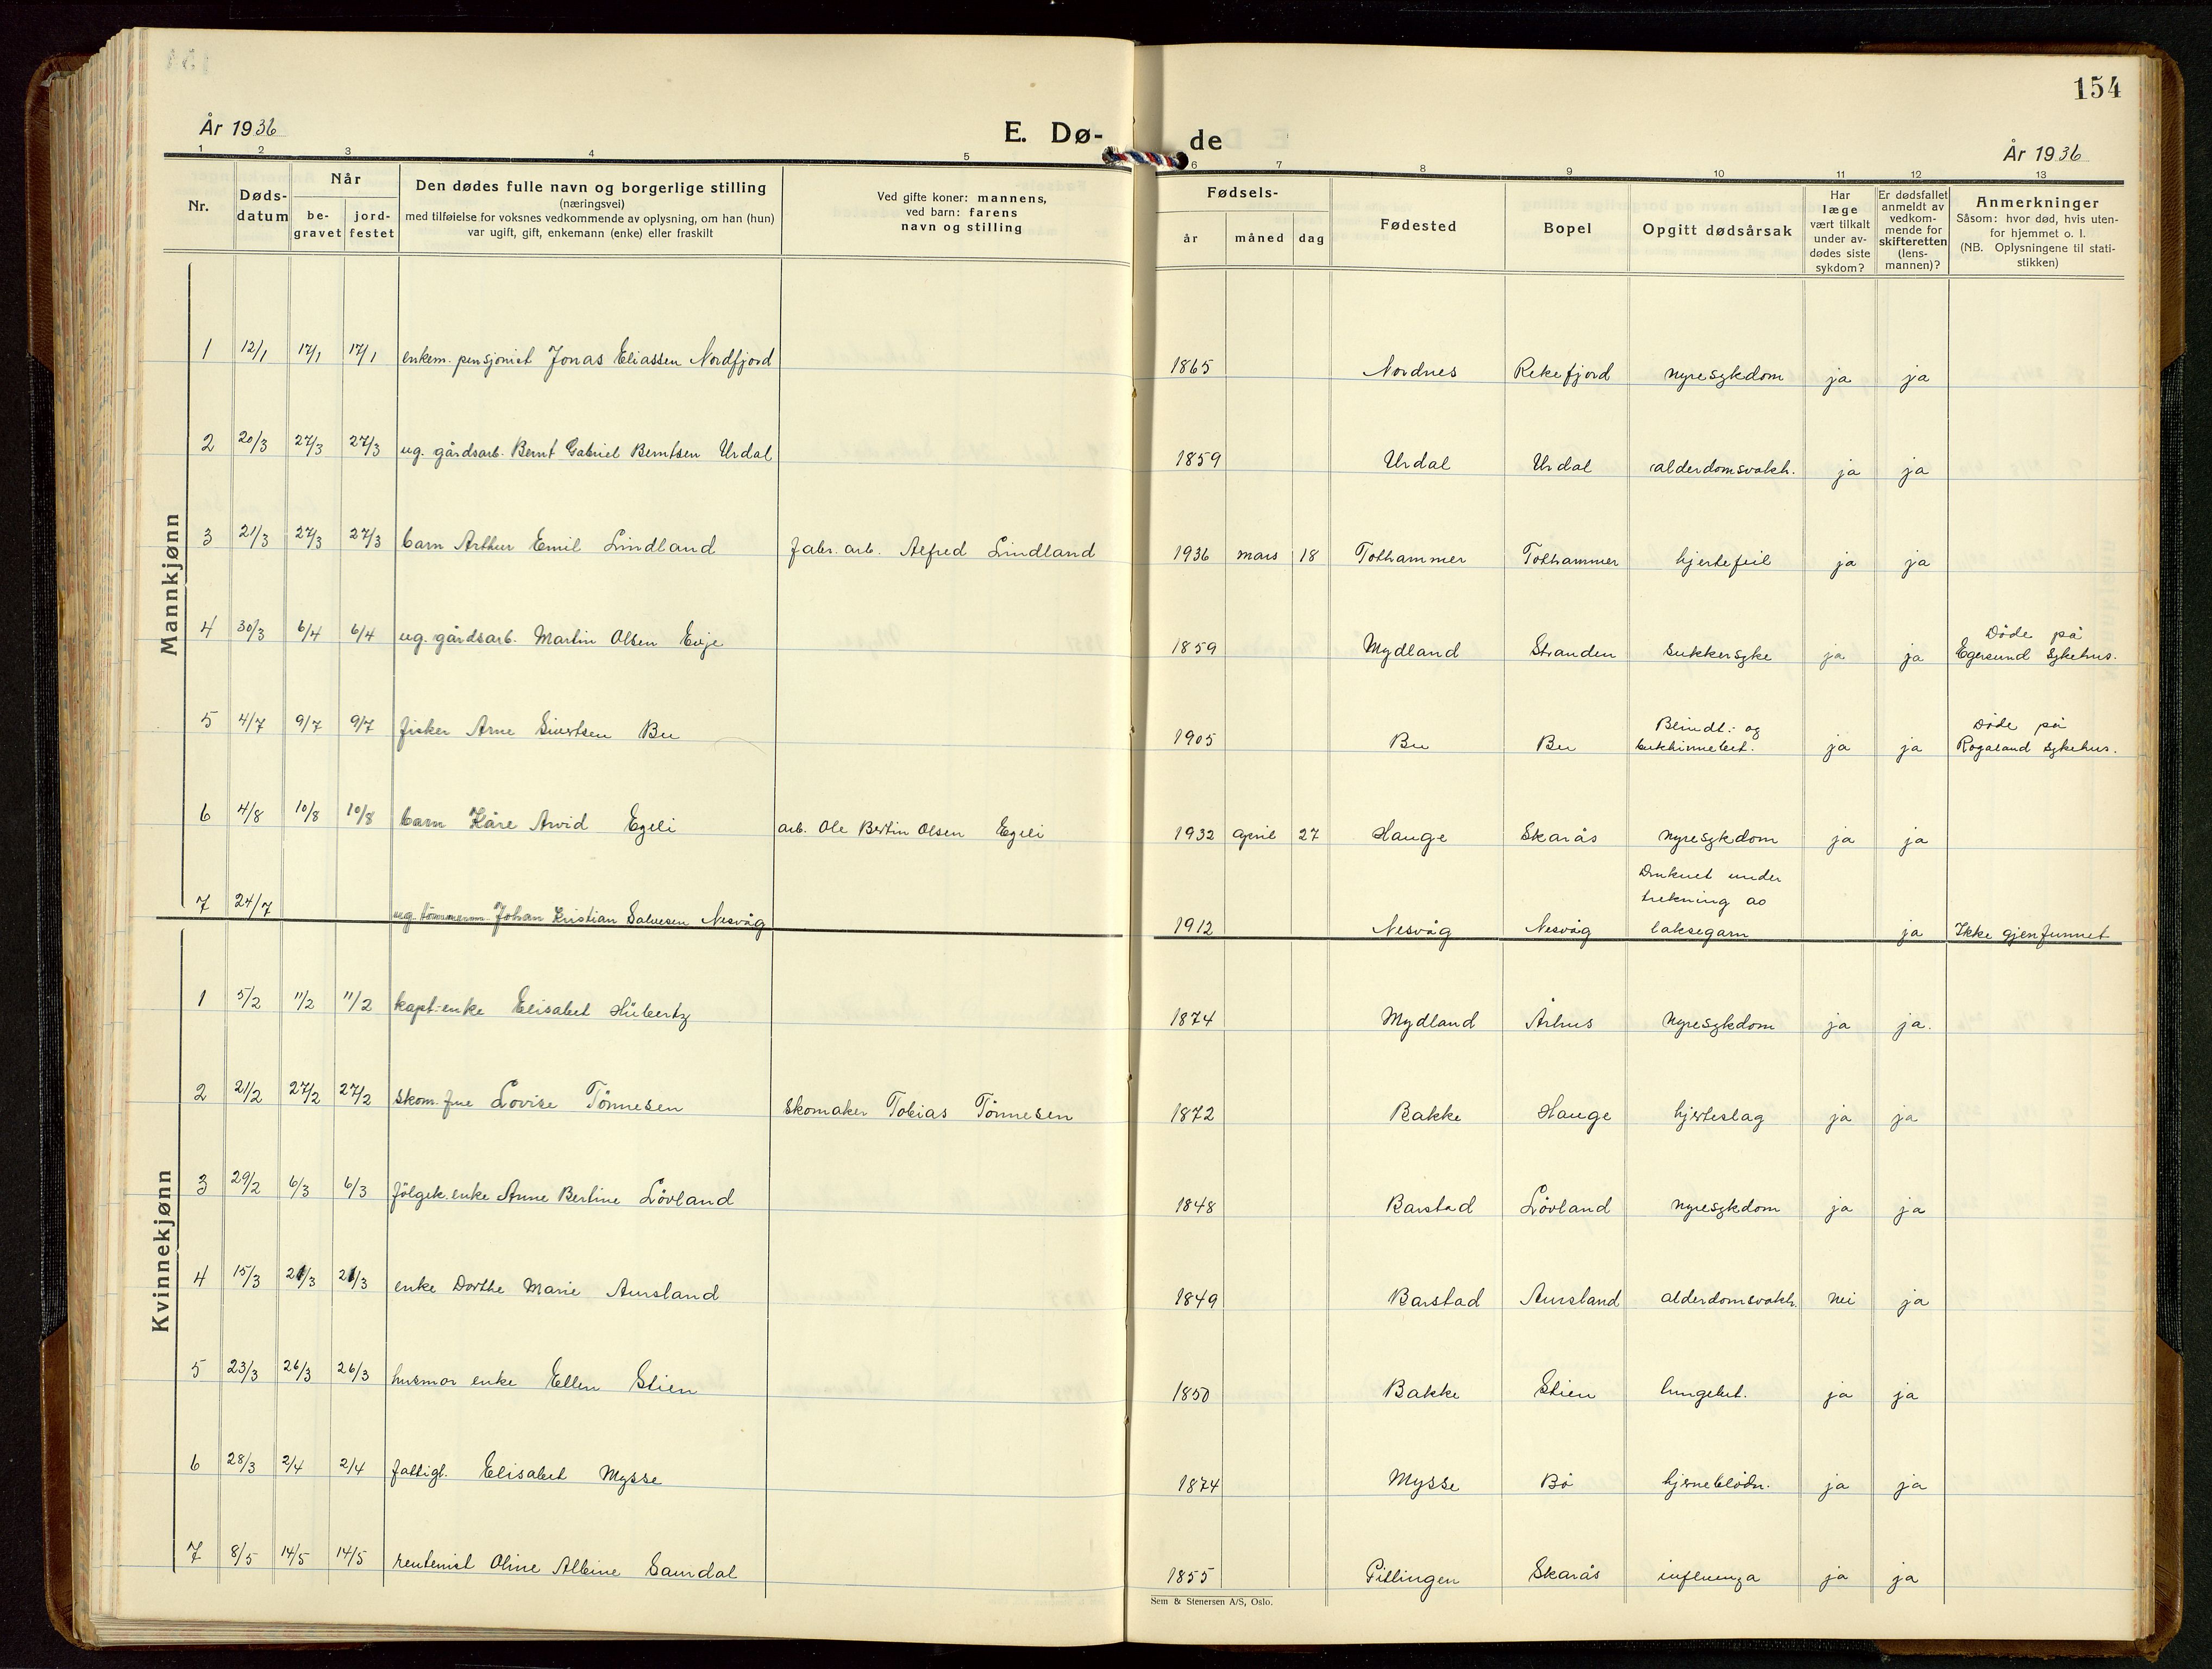 154
År 1936
E. Dø-
de
År 1936
1 2 3 4 5 6 7 8 9 10 11 12 13
Nr.
Døds-
datum
Når
be-
gravet
jord-
festet
Den dødes fulle navn og borgerlige stilling
(næringsvei)
med tilføielse for voksnes vedkommende av oplysning, om han (hun)
var ugift, gift, enkemann (enke) eller fraskilt
Ved gifte koner: mannens,
ved barn: farens
navn og stilling
Fødsels-
år måned dag
Fødested
Bopel
Opgitt dødsårsak
Har
læge
vært tilkalt
under av-
dødes siste
sykdom?
Er dødsfallet
anmeldt av
vedkom-
mende for
skifteretten
(lens-
mannen)?
Anmerkninger
Såsom: hvor død, hvis uten-
for hjemmet o. l.
(NB. Oplysningene til stati-
stikken)
Mannkjønn
1 12/1 17/1 17/1 enkem. pensjonist Jonas Eliassen Nordfjord 1865 Nordnes Rekefjord nyresykdom ja ja
2 20/3 27/3 27/3 ug. gårdsarb. Bernt Gabriel Berntsen Urdal 1859 Urdal Urdal alderdomsvakh. ja ja
3 21/3 27/3 27/3 barn Arthur Emil Lindland fabr. arb. Alfred Lindland 1936 mars 18 Tothammer Tothammer hjertefeil ja ja
4 30/3 6/4 6/4 ug. gårdsarb. Martin Olsen Evje 1859 Mydland Stranden sukkersyke ja ja Döde på
Egersund sykehus.
5 4/7 9/7 9/7 fisker Arne Sivertsen Bu 1905 Bu Bu Blindt.: og
bukhinnebet. ja ja Döde på
Rogaland sykehus.
6 4/8 10/8 10/8 barn Kåre Arvid Egeli arb. Ole Bertin Olsen Egeli 1932 april 27 Hauge Skarås nyresykdom ja ja
7 24/7 ug. tömmermm. Johan Kristian Salvesen Nesvåg 1912 Nesvåg Nesvåg Druknet under
trekning av
laksegarn ja Ikke gjenfunnet
Kvinnekjønn
1 5/2 11/2 11/2 kapt.-enke Elisabet Hübertz 1874 Mydland Århus nyresykdom ja ja.
2 21/2 27/2 27/2 skom. frue Lovise Tönnesen skomaker Tobias Tönnesen 1872 Bakke Hauge hjerteslag ja ja
3 29/2 6/3 6/3 fölgek. enke Anne Bertine Lövland 1848 Barstad Lövland nyresykdom ja ja
4 15/3 21/3 21/3 enke Dorthe Marie Aursland 1849 Barstad Aursland alderdomsvakh. nei ja
5 23/3 26/3 26/3 husmor enke Ellen Stien 1850 Bakke Stien lungebet. ja ja
6 28/3 2/4 2/4 fattigl. Elisabet Mysse 1874 Mysse Bö hjerneblödn. ja ja
7 8/5 14/5 14/5 rentenist Oline Albine Samdal 1855 Fitlingen Skarås influenza ja ja
Sem & Stenersen A/S, Oslo.